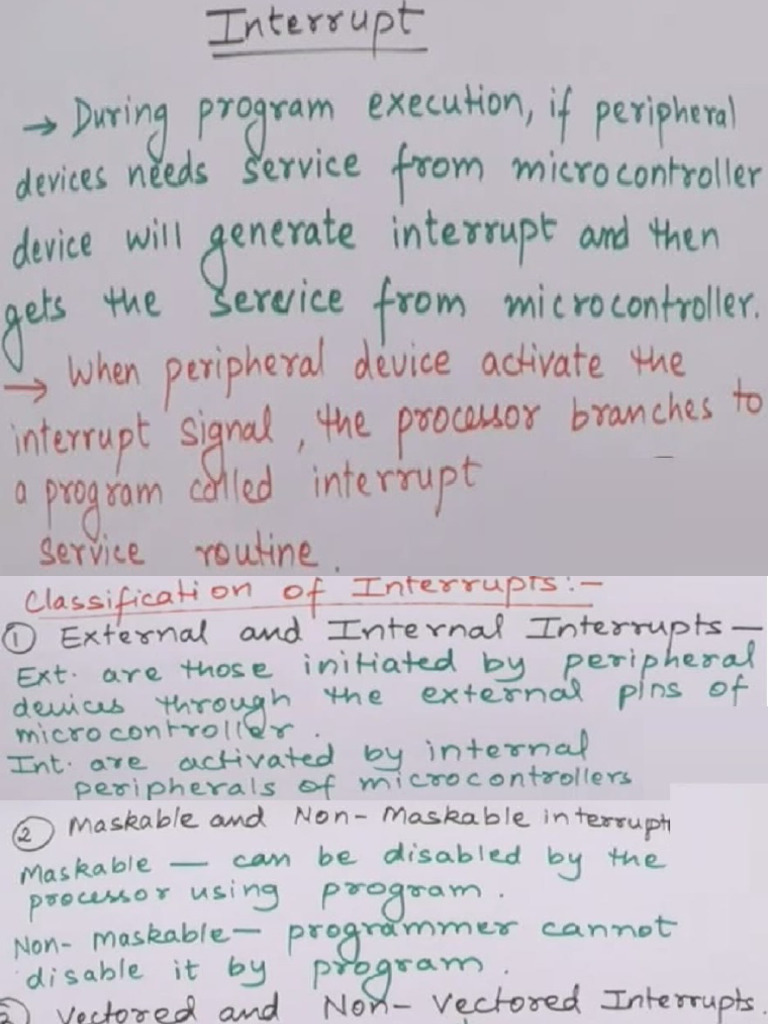 Interrupt
→ During program execution, if peripheral
devices needs service from microcontroller
device will generate interrupt and then
gets the service from microcontroller.
→ When peripheral device activate the
interrupt signal, the processor branches to
a program called interrupt
service routine.
Classification of Interrupts:-
① External and Internal Interrupts —
Ext. are those initiated by peripheral
devices through the external pins of
microcontroller.
Int. are activated by internal
peripherals of microcontrollers
② Maskable and Non-Maskable interrupt
Maskable — can be disabled by the
processor using program.
Non-maskable — programmer cannot
disable it by program.
Vectored and Non-Vectored Interrupts.